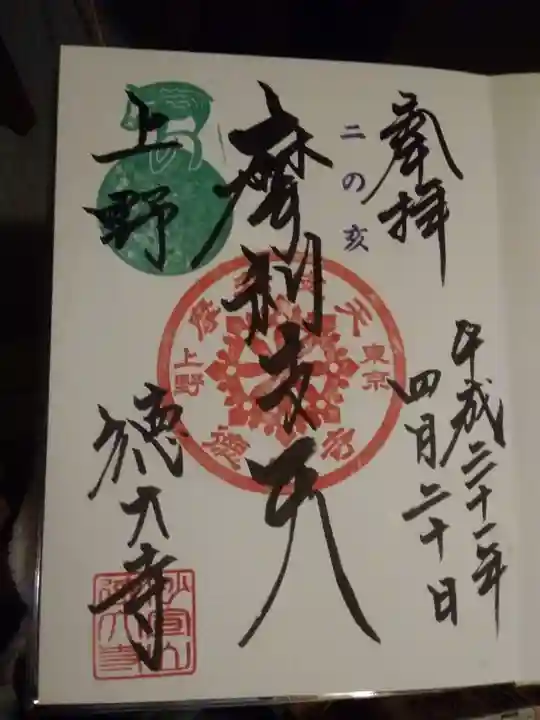 奉拝
二の亥
平成二十一年
四月二十日
摩利支天
上野
徳大寺
東京
上野